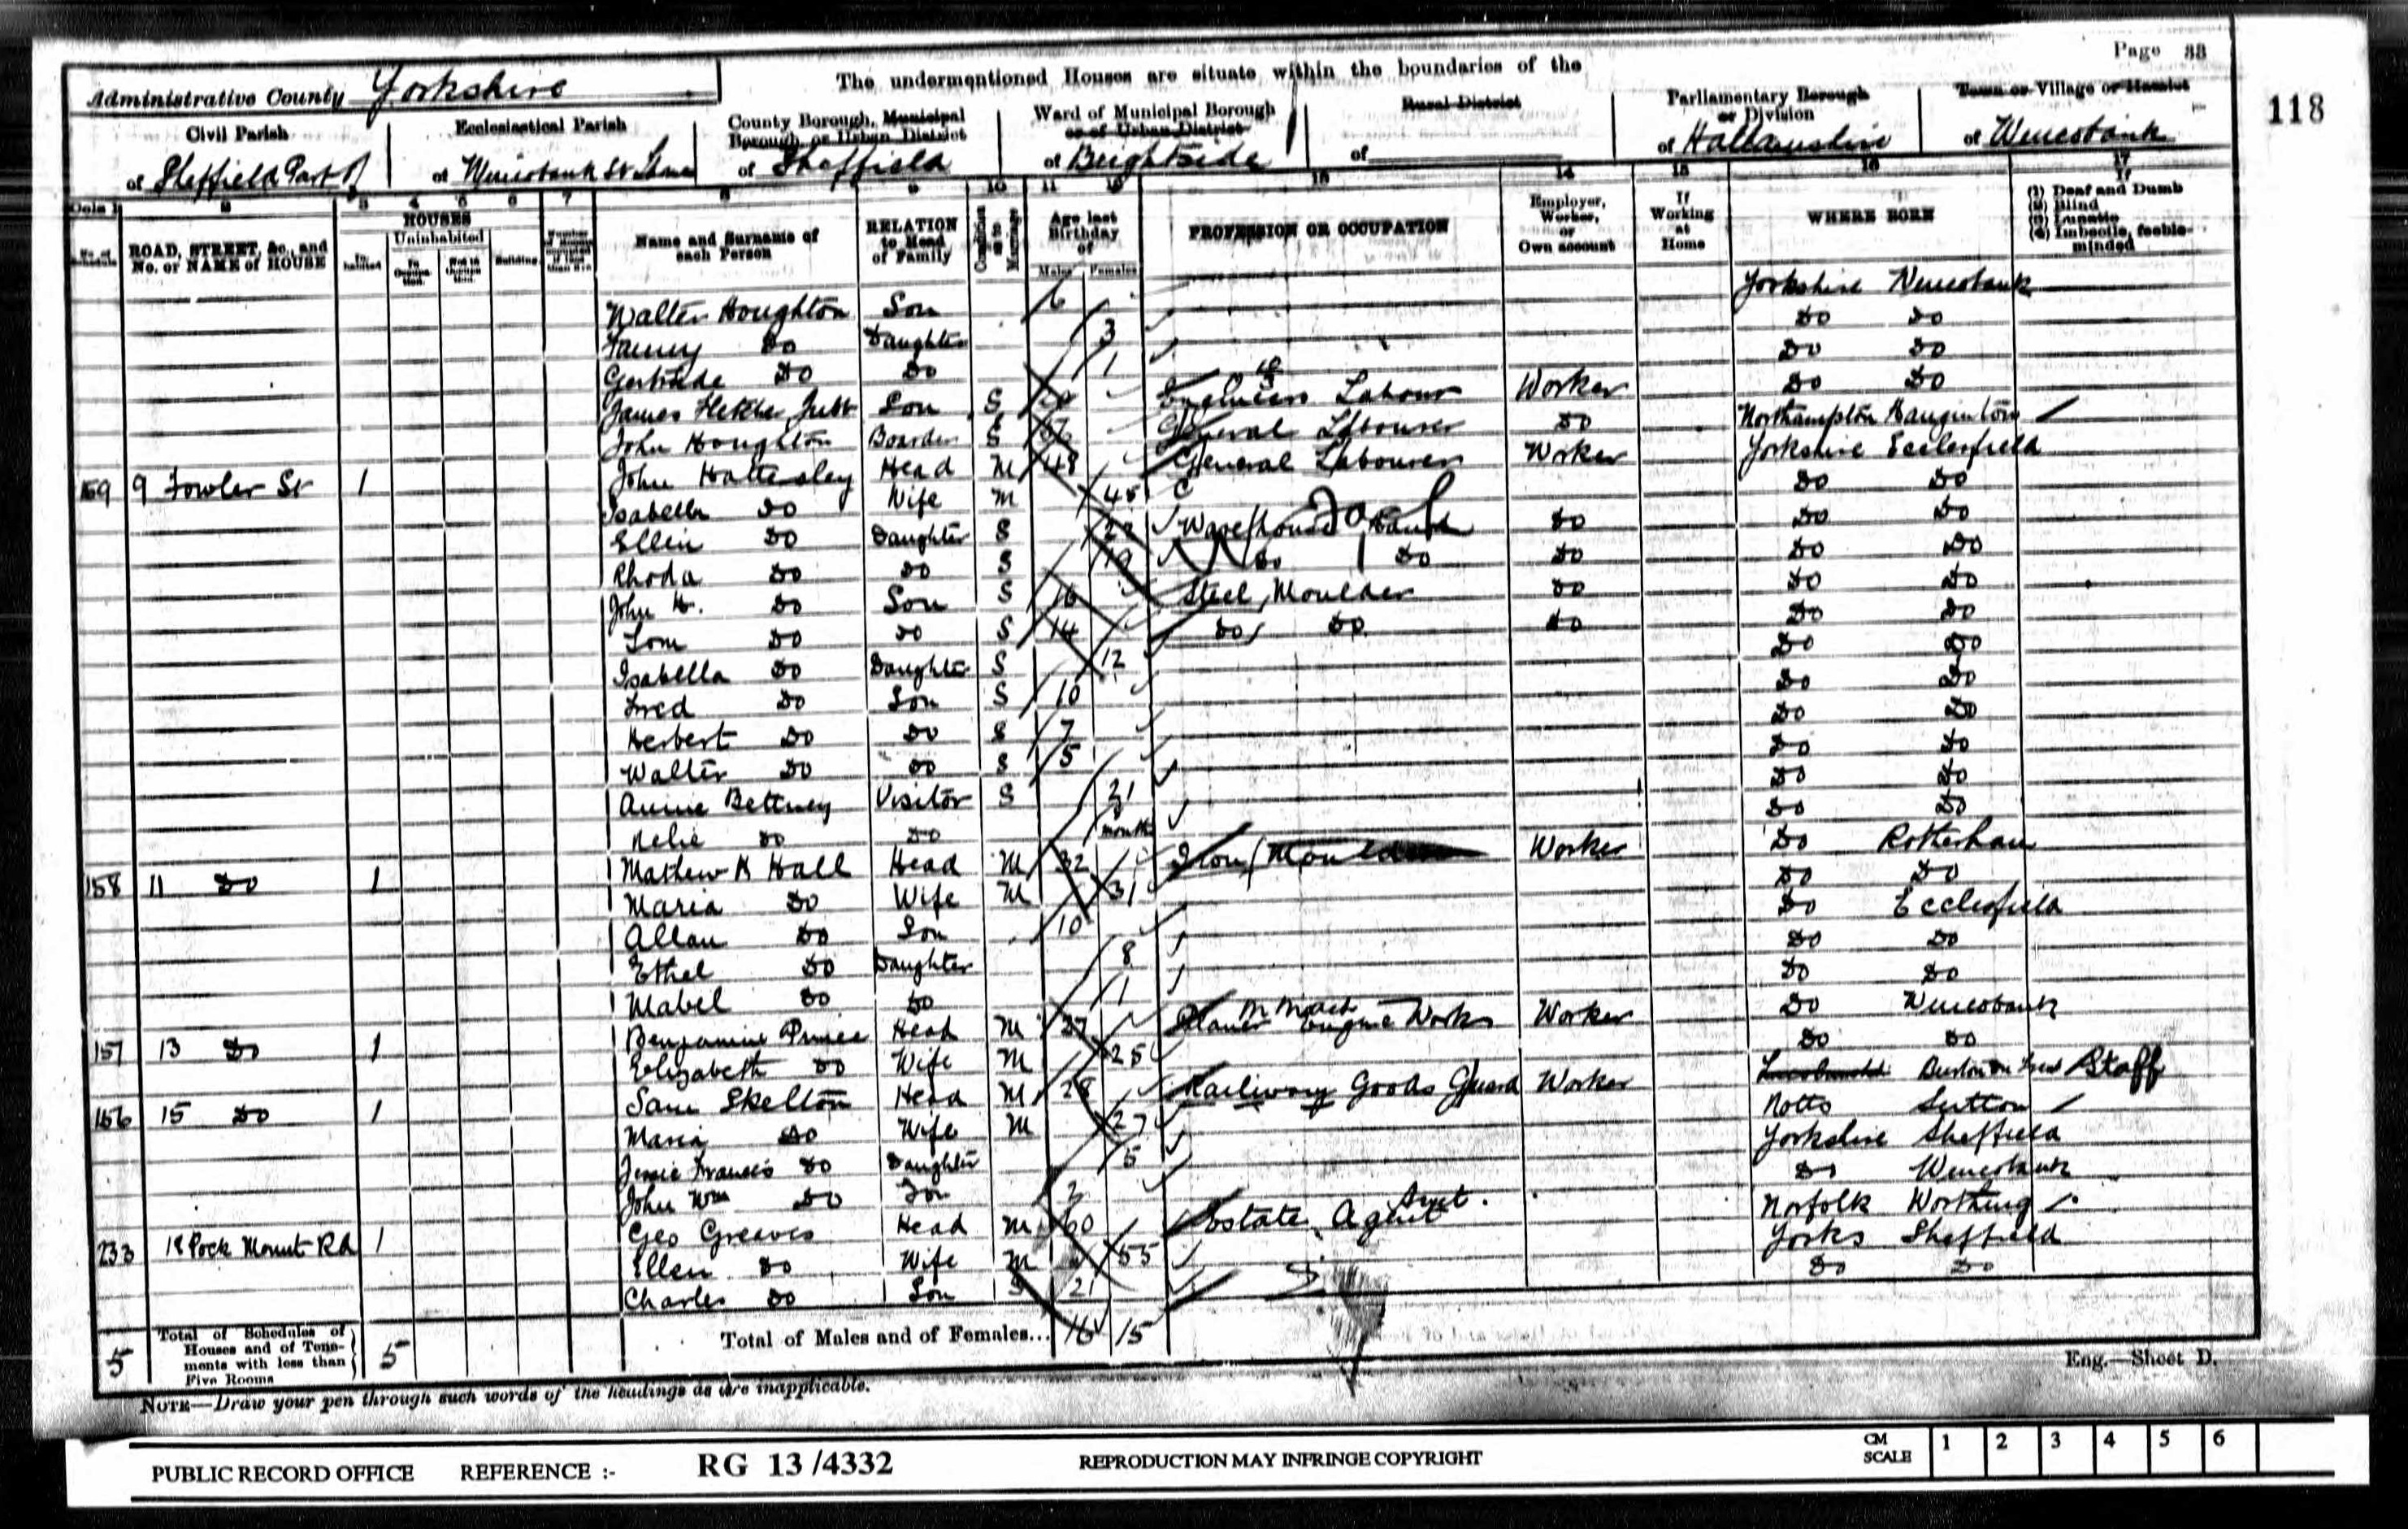 Page 33
118
Administrative County Yorkshire
The undermentioned Houses are situate within the boundaries of the
Civil Parish
of Sheffield Part of
Ecclesiastical Parish
of Wincobank St Thomas
County Borough, Municipal Borough, or Urban District
of Sheffield
Ward of Municipal Borough or of Urban District
of Brightside
Rural District
of
Parliamentary Borough or Division
of Hallamshire
Town or Village or Hamlet
of Wincobank
Cols 1 2 3 4 5 6 7 8 9 10 11 12 13 14 15 16 17
No. of Schedule
ROAD, STREET, &c., and No. or NAME of HOUSE
HOUSES
Inhabited
Uninhabited
In Occupation
Not in Occupation
Building
Name and Surname of each Person
RELATION to Head of Family
Condition as to Marriage
Age last Birthday of
Males Females
PROFESSION OR OCCUPATION
Employer, Worker, or Own account
If Working at Home
WHERE BORN
If
(1) Deaf and Dumb
(2) Blind
(3) Lunatic
(4) Imbecile, feeble-minded
Walter Houghton Son 6 Yorkshire Wincobank
Fanny Do Daughter 3 Do Do
Gertrude Do Do 1 Do Do
James Son S Labour Worker Do Do
John Houghton Boarder S General Labourer Do Northampton
159 9 Fowler St 1 John Hattersley Head M 48 General Labourer Worker Yorkshire Ecclesfield
Isabella Do Wife M 45 Do Do
Ellen Do Daughter S Warehouse Hand Do Do Do
Rhoda Do Do S 19 Do Do Do Do Do
John H. Do Son S 16 Steel Moulder Do Do Do
Tom Do Do S 14 Do Do Do Do Do
Isabella Do Daughter S 12 Do Do
Fred Do Son S 10 Do Do
Herbert Do Do S 7 Do Do
Walter Do Do S 5 Do Do
Annie Bettney Visitor S 21 Do Do
Nelie Do Do months Do Do
158 11 Do 1 Mathew H Hall Head M 32 Iron Moulder Worker Do Rotherham
Maria Do Wife M 31 Do Do
Allan Do Son 10 Do Ecclesfield
Ethel Do Daughter 8 Do Do
Mabel Do Do 1 Do Do
157 13 Do 1 Benjamine Prince Head M 27 Planer M Mach Engine Works Worker Do Wincobank
Elizabeth Do Wife M 25 Do Do
156 15 Do 1 Sam Skelton Head M 28 Railway Goods Guard Worker Burton on Trent Staff
Maria Do Wife M 27 Notts Sutton
Jessie Francis Do Daughter 5 Yorkshire Sheffield
John Wm Do Son 2 Do Wincobank
233 18 Pock Mount Rd 1 Geo Greaves Head M 60 Estate Agent Norfolk Worthing
Ellen Do Wife M 55 Yorks Sheffield
Charles Do Son S 21 Do Do
5 Total of Schedules of Houses and of Tenements with less than Five Rooms 5 Total of Males and of Females... 16 15
Eng.—Sheet D.
NOTE—Draw your pen through such words of the headings as are inapplicable.
PUBLIC RECORD OFFICE REFERENCE :- RG 13 /4332 REPRODUCTION MAY INFRINGE COPYRIGHT CM SCALE 1 2 3 4 5 6